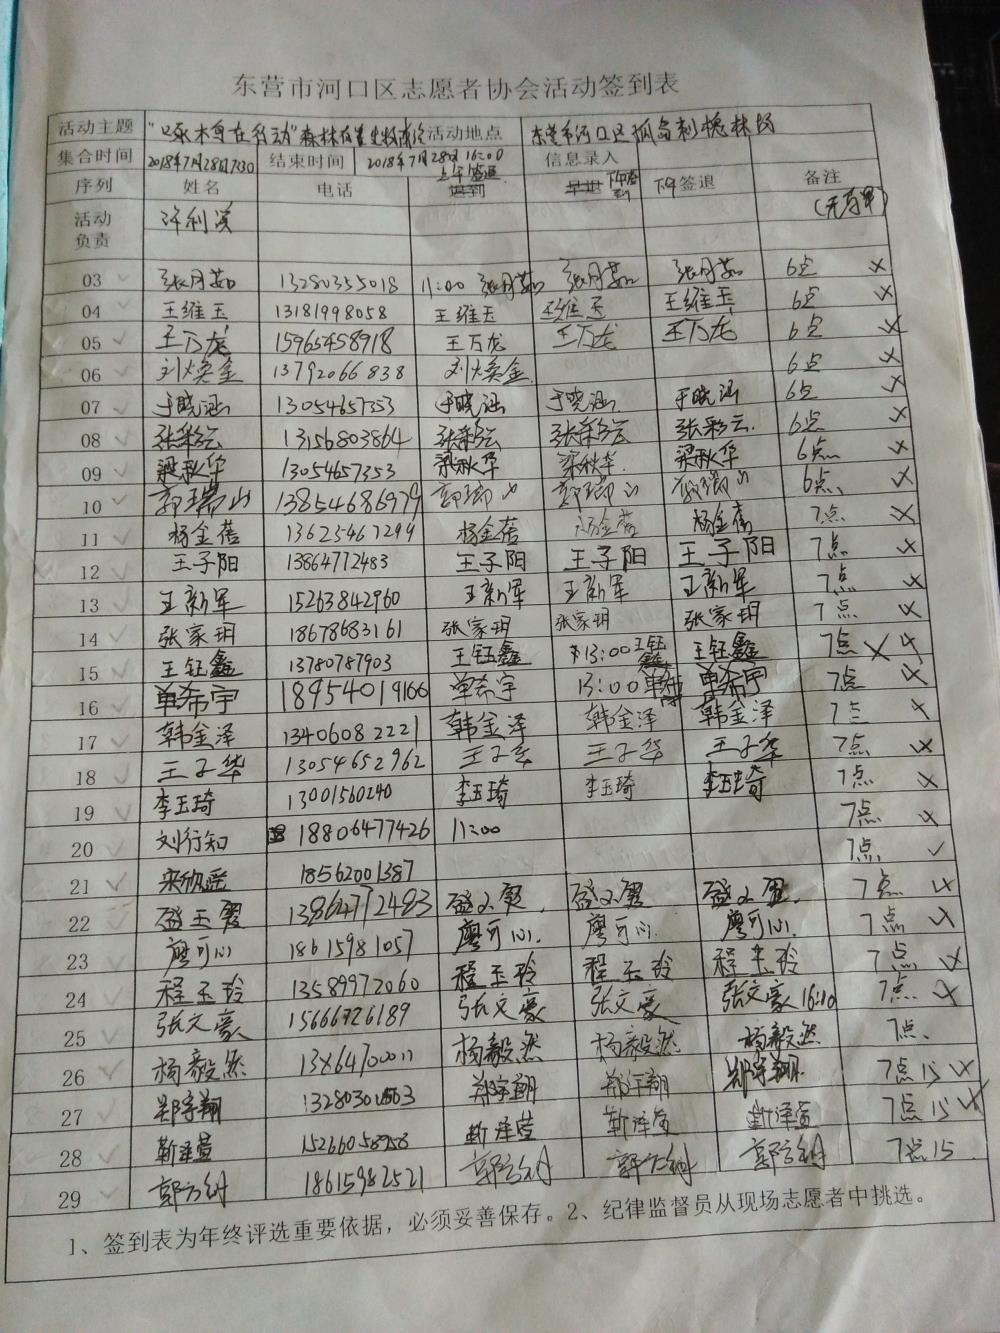 东营市河口区志愿者协会活动签到表
活动主题 "啄木鸟在行动"森林 活动地点 东营市河口区孤岛刺槐林场
集合时间 2018年7月28日7:30 结束时间 2018年7月28日16:00 信息录入
序列 姓名 电话 上午签退 迟到 早退 下午签到 下午签退 备注
活动负责
03 张月茹 13280355018 11:00 张月茹 张月茹 张月茹 6点 ×
04 王维玉 13181998058 王维玉 王维玉 王维玉 6点 ×
05 王万龙 15965458918 王万龙 王万龙 王万龙 6点 ×
06 刘焕金 13792066838 刘焕金 6点 ×
07 于晓涵 13054657353 于晓涵 于晓涵 于晓涵 6点 ×
08 张彩云 13156803864 张彩云 张彩云 张彩云 6点 ×
09 梁秋华 13054657353 梁秋华 梁秋华 梁秋华 6点 ×
10 郭瑞山 13854686979 郭瑞山 郭瑞山 郭瑞山 6点 ×
11 杨金蓓 13625467299 杨金蓓 杨金蓓 杨金蓓 7点 ×
12 王子阳 13864772483 王子阳 王子阳 王子阳 7点 ×
13 王新军 15263842960 王新军 王新军 王新军 7点 ×
14 张家玥 18678683161 张家玥 张家玥 张家玥 7点 ×
15 王钰鑫 13780787903 王钰鑫 13:00 王钰鑫 王钰鑫 7点 ×
16 单希宇 18954019166 单希宇 13:00 单希宇 单希宇 7点 ×
17 韩金泽 13406082221 韩金泽 韩金泽 韩金泽 7点 ×
18 王子华 13054652962 王子华 王子华 王子华 7点 ×
19 李玉琦 13001560240 李玉琦 李玉琦 李玉琦 7点 ×
20 刘行知 18806477426 11:00 7点 ×
21 宋欣遥 18562001387 7点 ✓
22 盛玉贤 13864772483 7点 ×
23 廖可心 18615981057 廖可心 廖可心 廖可心 7点 ×
24 程玉玲 13589972060 程玉玲 程玉玲 程玉玲 7点 ×
25 张文豪 15666726189 张文豪 张文豪 张文豪 16:10 7点 ×
26 杨毅然 杨毅然 杨毅然 杨毅然 7点
27 郑宇翔 郑宇翔 郑宇翔 郑宇翔 7点15 ×
28 靳泽萱 15266058958 靳泽萱 靳泽萱 靳泽萱 7点15 ×
29 18615982521 7点15
1、签到表为年终评选重要依据，必须妥善保存。2、纪律监督员从现场志愿者中挑选。